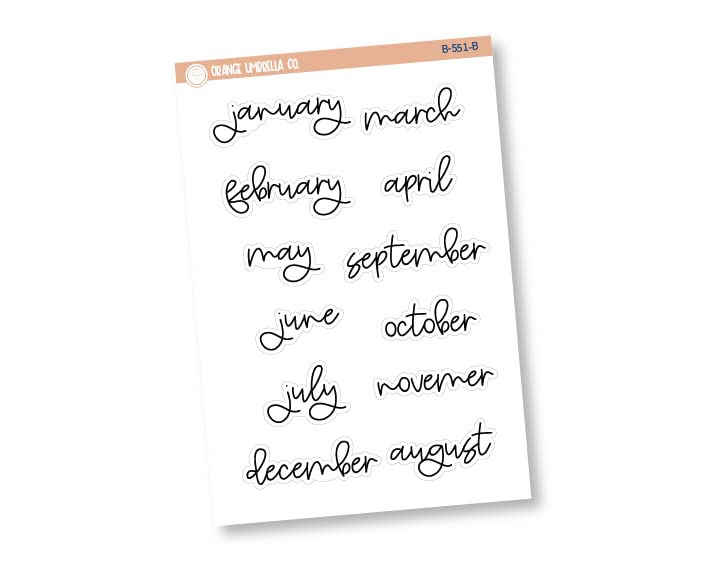 ORANGE UMBRELLA CO. B-551-B
january march
february april
may september
june october
july novemer
december august